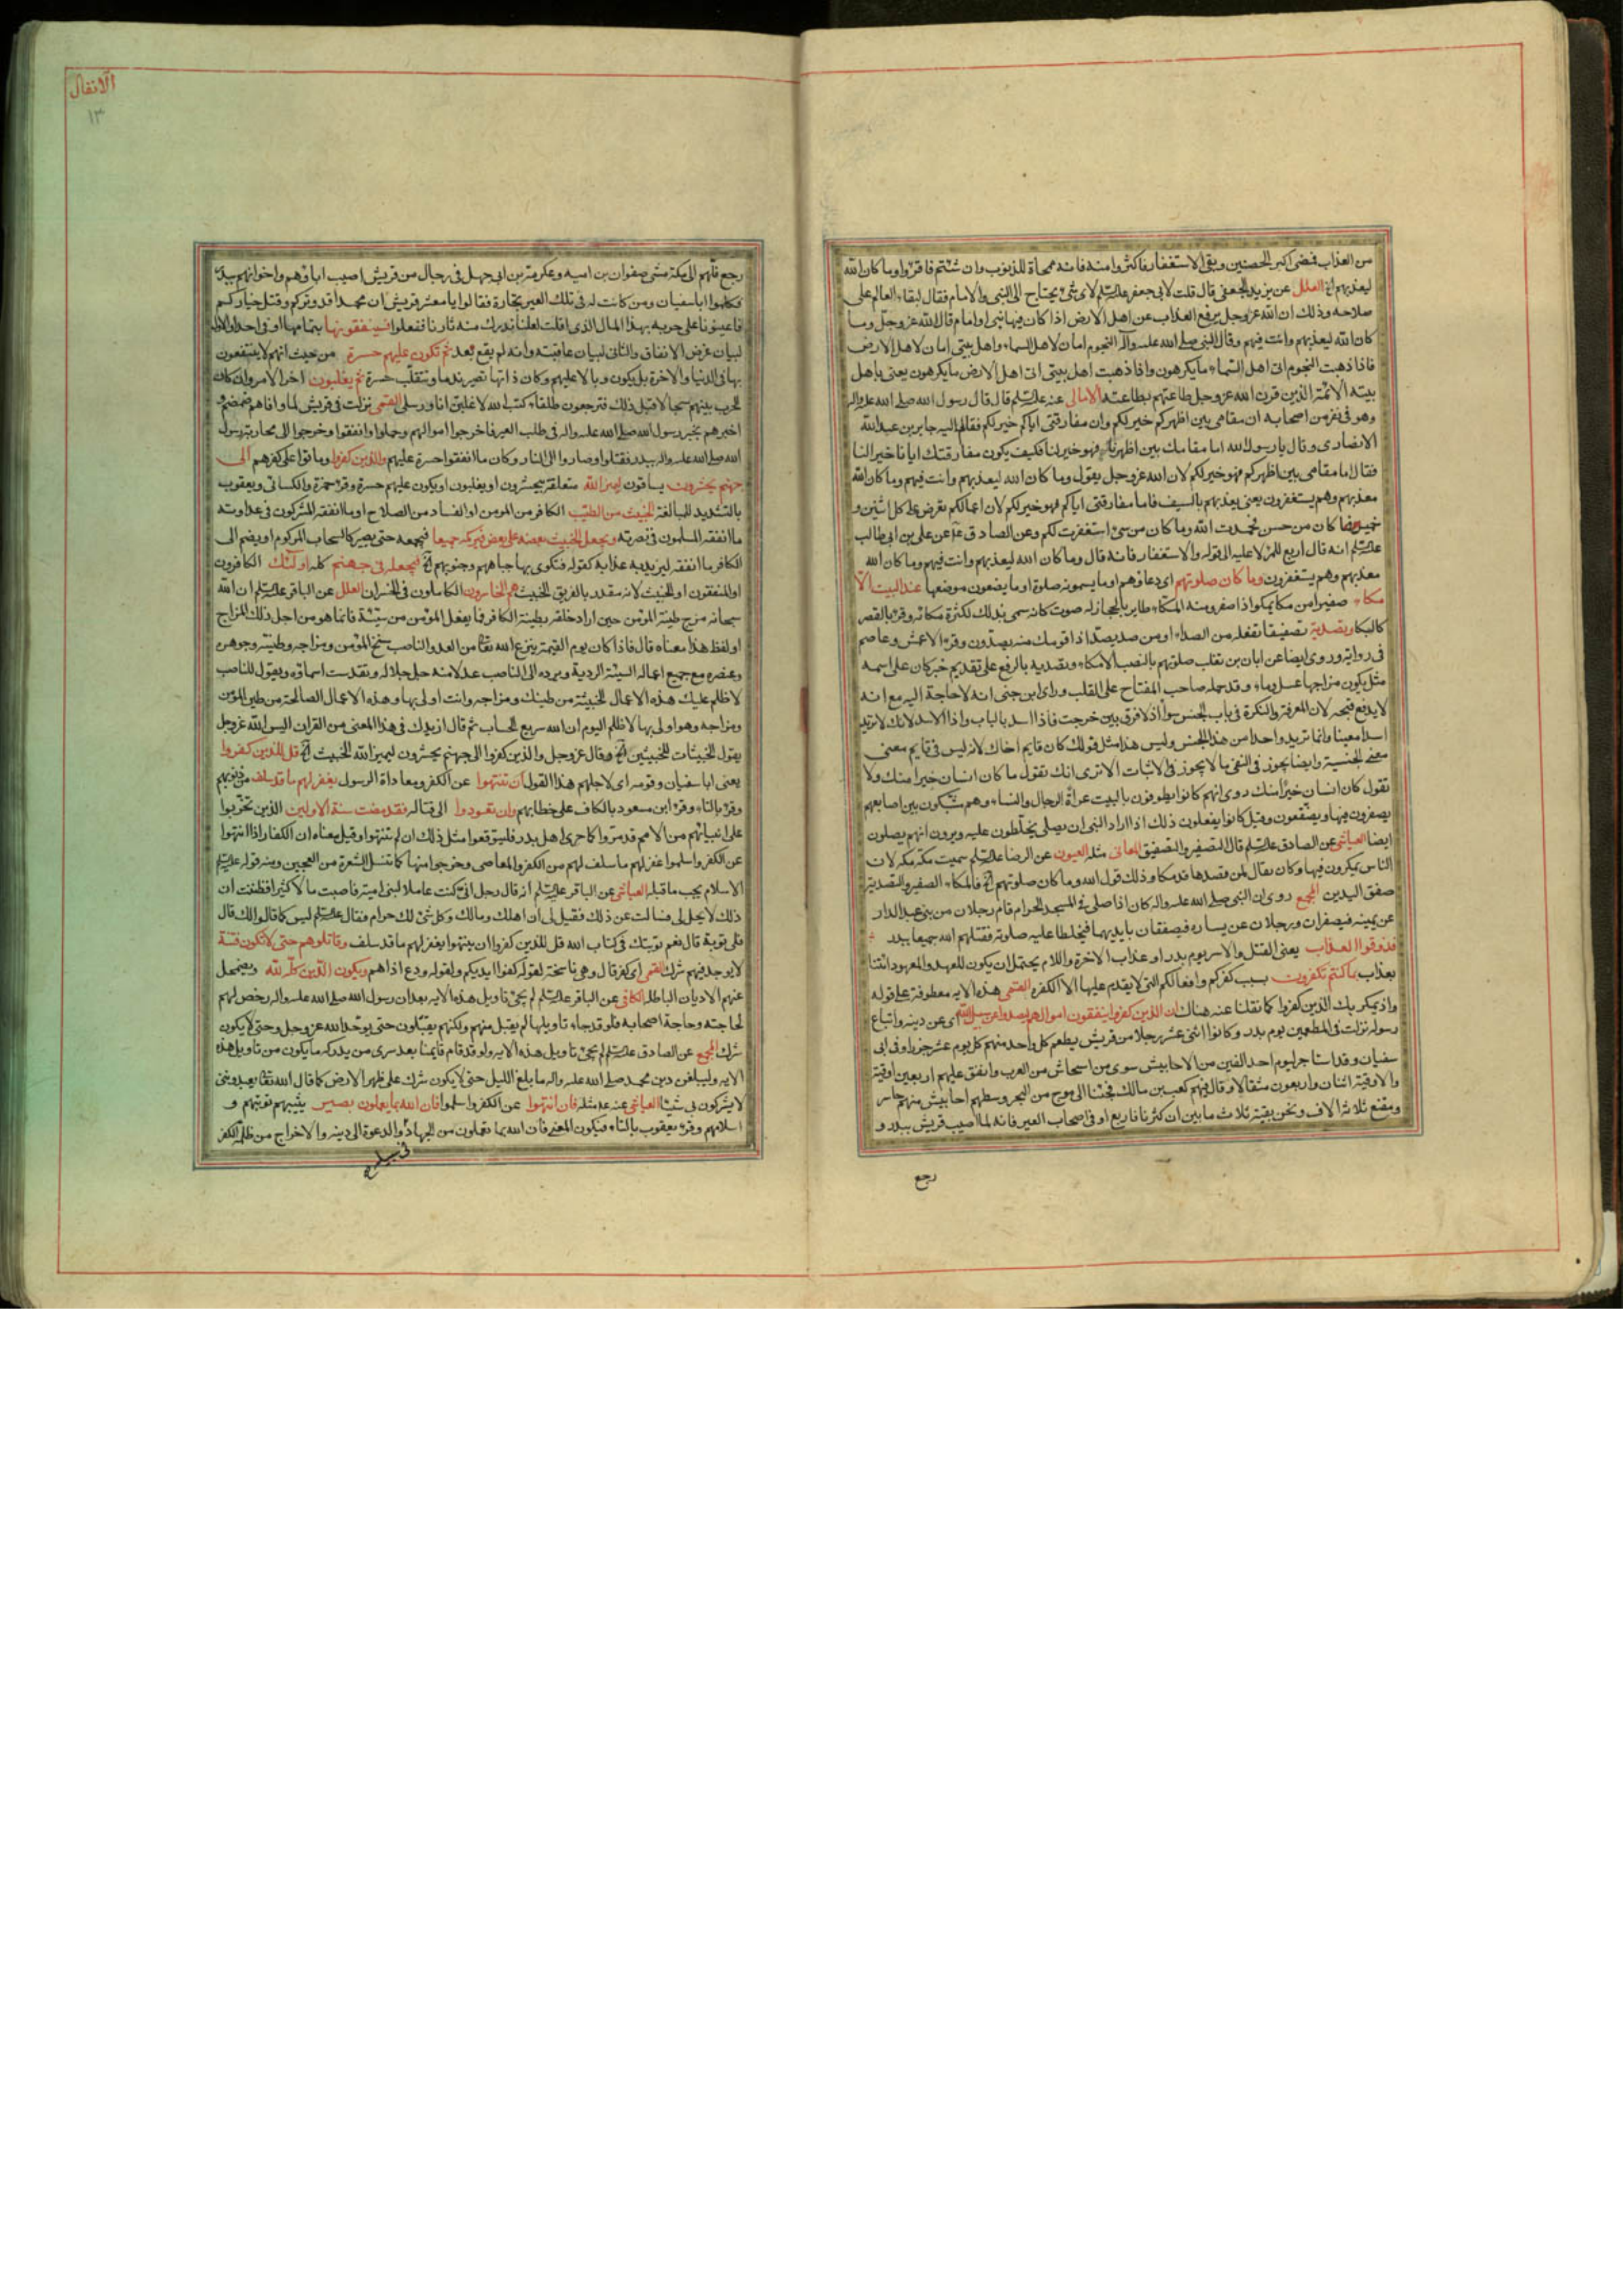 من العذاب فمضى اكبر الحصنين وبقى الاستغفار فاكثروا منه فانه ممحاة للذنوب وان شئتم فاقرؤا وما كان الله
ليعذبهم الخ العلل عن يزيد الجعفى قال قلت لابى جعفر علیه السلم لاى شئ يحتاج الى النبى والامام فقال لبقاء العالم على
صلاحه وذلك ان الله عز وجل يرفع العذاب عن اهل الارض اذا كان فيها نبى او امام قال الله عز وجل وما
كان الله ليعذبهم وانت فيهم وقال النبى صلى الله عليه وآله النجوم امان لاهل السماء واهل بيتى امان لاهل الارض
فاذا ذهبت النجوم اتى اهل السماء ما يكرهون واذا ذهبت اهل بيتى اتى اهل الارض ما يكرهون يعنى باهل
بيته الائمة الذين قرن الله عز وجل طاعتهم بطاعته الامالى عنه علیه السلم قال قال رسول الله صلى الله عليه واله
وهو فى نفر من اصحابه ان مقامى بين اظهركم خير لكم وان مفارقتى اياكم خير لكم فقام اليه جابر بن عبد الله
الانصارى وقال يا رسول الله اما مقامك بين اظهرنا فهو خير لنا فكيف يكون مفارقتك ايانا خير النا
فقال اما مقامى بين اظهركم فهو خير لكم لان الله عز وجل يقول وما كان الله ليعذبهم وانت فيهم وما كان الله
معذبهم وهم يستغفرون يعنى يعذبهم بالسيف فاما مفارقتى اياكم فهو خير لكم لان اعمالكم تعرض على كل اثنين و
خميس فما كان من حسن حمدت الله وما كان من سئ استغفرت لكم وعن الصادق عن على بن ابى طالب
علیه السلم انه قال اربع للمرء لا عليه الى قوله والاستغفار فانه قال وما كان الله ليعذبهم وانت فيهم وما كان الله
معذبهم وهم يستغفرون وما كان صلوتهم اى دعاؤهم او ما يسمونه صلوة او ما يضعون موضعها عند البيت الا
مكاء صفيرا من مكا يمكوا اذا صفر ومنه المكاء طاير بالحجاز له صوت كانه سمى بذلك لكثرة مكائه وقرئ بالقصر
كالبكا وتصدية تصفيقا تفعله من الصداء او من صد يصد اذا قومك منه يصدون وقرء الاعمش وعاصم
فى رواية وروى ايضا عن ابان بن تغلب صلوتهم بالنصب الا مكاء وتصدية بالرفع على تقديم خبر كان على اسمه
مثل يكون مزاجها عسل وماء وقد حمله صاحب المفتاح على القلب وراى ابن جنى انه لا حاجة اليه مع انه
لان المعرفة والنكرة فى باب الجنس سواء اذ لا فرق بين خرجت فاذا اسد بالباب واذا الاسد لانك لا تريد
اسدا معينا وانما تريد واحدا من هذا الجنس وليس هذا مثل قولك كان قايم اخاك لانه ليس فى قايم معنى
معنى الجنسية وايضا يجوز فى النفى ما لا يجوز فى الاثبات الا ترى انك تقول ما كان انسان خيرا منك ولا
تقول كان انسان خيرا منك روى انهم كانوا يطوفون بالبيت عراة الرجال والنساء وهم مشبكون بين اصابعهم
يصفرون فيها ويصفقون وقيل كانوا يفعلون ذلك اذا اراد النبى ان يصلى يخلطون عليه ويرون انهم يصلون
ايضا العياشى عن الصادق علیه السلم قال التصفير والتصفيق المعانى مثله العيون عن الرضا علیه السلم سميت مكة مكة لان
الناس يمكون فيها وكان يقال لمن قصدها قد مكا وذلك قول الله وما كان صلوتهم الخ فالمكاء الصفير والتصدية
صفق اليدين المجمع روى ان النبى صلى الله عليه واله كان اذا صلى فى المسجد الحرام قام رجلان من بنى عبد الدار
عن يمينه فيصفران ورجلان عن يساره فيصفقان بايديهما فيخلطا عليه صلوته فقتلهم الله جميعا ببدر
فذوقوا العذاب يعنى القتل والاسر يوم بدر او عذاب الاخرة واللام يحتمل ان يكون للعهد والمعهود ائتنا
بعذاب بما كنتم تكفرون بسبب كفركم وافعالكم التى لا يقدم عليها الا الكفرة القمى هذه الايه معطوفة على قوله
واذ يمكر بك الذين كفروا كما نقلنا عنه هناك ان الذين كفروا ينفقون اموالهم ليصدوا عن سبيل الله اى عن دينه واتباع
رسوله نزلت فى المطعمين يوم بدر وكانوا اثنى عشر رجلا من قريش يطعم كل واحد منهم كل يوم عشر جزر او فى ابى
سفيان وقد استاجر ليوم احد الفين من الاحابيش سوى من استجاش من العرب وانفق عليهم اربعين اوقية
والاوقية اثنان واربعون مثقالا وقال فيهم كعب بن مالك فجئنا الى موج من البحر وسطهم احابيش منهم حاسر
ومقنع ثلاثة الاف ونحن بقية ثلاث مابين ان كثرنا فاربع او فى اصحاب العير فانه لما اصيب قريش ببدر و
رجع
الانفال
١٣
رجع فلهم الى مكة مشى صفوان بن اميه وعكرمة بن ابى جهل فى رجال من قريش اصيب اباؤهم واخوانهم ببدر
فكلموا ابا سفيان ومن كانت له فى تلك العير تجارة فقالوا يا معشر قريش ان محمدا قد وتركم وقتل خياركم
فاعينونا على حربه بهذا المال الذى افلت لعلنا ندرك منه ثارنا ففعلوا فسينفقونها بتمامها
لبيان غرض الانفاق والثانى لبيان عاقبته وانه لم يقع بعد ثم تكون عليهم حسرة من حيث انهم لا ينتفعون
بها فى الدنيا والاخرة بل يكون وبالا عليهم وكان ذاتها تصير ندما وتنقلب حسرة ثم يغلبون اخر الامر وان كان
الحرب بينهم سجالا قبل ذلك فيرجعون طلقاء كتب الله لاغلبن انا ورسلى القمى نزلت فى قريش لما وافاهم ضمضم و
اخبرهم بخبر رسول الله صلى الله عليه واله فى طلب العير فاخرجوا اموالهم وحملوا وانفقوا وخرجوا الى محاربة رسول
الله صلى الله عليه واله ببدر فقتلوا وصاروا الى النار وكان ما انفقوا حسرة عليهم والذين كفروا وماتوا على كفرهم الى
جهنم يحشرون يساقون ليميز الله متعلقة بيحشرون او يغلبون او يكون عليهم حسرة وقرء حمزة والكسائى ويعقوب
بالتشديد للمبالغة الخبيث من الطيب الكافر من المومن او الفساد من الصلاح او ما انفقه المشركون فى عداوته
ما انفقه المسلمون فى نصرته ويجعل الخبيث بعضه على بعض فيركمه جميعا فيجمعه حتى يصير كالسحاب المركوم او يضم الى
الكافر ما انفقه ليزيد به عذابه كقوله فتكوى بها جباههم وجنوبهم الخ فيجعله فى جهنم كله اولئك الكافرون
او المنفقون او الخبيث لانه مقدر بالفريق الخبيث هم الخاسرون الكاملون فى الخسران العلل عن الباقر علیه السلم ان الله
سبحانه مزج طينة المؤمن حين اراد خلقه بطينة الكافر فما يفعل المؤمن من سيئة فانما هو من اجل ذلك المزاج
او لفظ هذا معناه قال فاذا كان يوم القيمة ينزع الله تعالى من العدو الناصب سنخ المؤمن ومزاجه وطينته وجوهره
وعنصره مع جميع اعماله السيئة الردية ويرده الى الناصب عدلا منه جل جلاله وتقدست اسماؤه ويقول للناصب
لا ظلم عليك هذه الاعمال الخبيثة من طينك ومزاجه وانت اولى بها وهذه الاعمال الصالحة من طين المؤمن
ومزاجه وهو اولى بها لا ظلم اليوم ان الله سريع الحساب ثم قال ازيدك فى هذا المعنى من القران اليس الله عز وجل
يقول الخبيثات للخبيثين الخ وقال عز وجل والذين كفروا الى جهنم يحشرون ليميز الله الخبيث الخ قل للذين كفروا
يعنى ابا سفيان وقومه اى لاجلهم هذا القول ان تنتهوا عن الكفر ومعاداة الرسول يغفر لهم ما قد سلف من ذنوبهم
وقرئ بالتاء وقرء ابن مسعود بالكاف على خطابهم وان يعودوا الى قتاله فقد مضت سنة الاولين الذين تحزبوا
على انبيائهم من الامم قد مروا كما جرى اهل بدر فليتوقعوا مثل ذلك ان لم تنتهوا وقيل معناه ان الكفار اذا انتهوا
عن الكفر واسلموا غفر لهم ما سلف لهم من الكفر والمعاصى وخرجوا منها كما تنسل الشعرة من العجين ومنه قوله علیه السلم
الاسلام يجب ما قبله العياشى عن الباقر علیه السلم انه قال رجل انى كنت عاملا لبنى امية فاصبت مالا كثيرا فظننت ان
ذلك لا يحل لى فسالت عن ذلك فقيل لى ان اهلك ومالك وكل شئ لك حرام فقال علیه السلم ليس كما قالوا لك قال
فلى توبة قال نعم توبتك فى كتاب الله قل للذين كفروا ان ينتهوا يغفر لهم ما قد سلف وقاتلوهم حتى لا تكون فتنة
لا يوجد فيهم شرك القمى اى كفر قال وهى ناسخة لقوله كفوا ايديكم ولقوله ودع اذاهم ويكون الدين كله لله ويضمحل
عنهم الاديان الباطلة الكافى عن الباقر علیه السلم لم يجئ تاويل هذه الايه بعد ان رسول الله صلى الله عليه واله رخص لهم
لحاجته وحاجة اصحابه فلو قد جاء تاويلها لم يقبل منهم ولكنهم يقتلون حتى يوحد الله عز وجل وحتى لا يكون
شرك المجمع عن الصادق علیه السلم لم يجئ تاويل هذه الايه ولو قد قام قايمنا بعد سرى من يدركه ما يكون من تاويل هذه
الايه وليبلغن دين محمد صلى الله عليه واله ما بلغ الليل حتى لا يكون شرك على ظهر الارض كما قال الله تعالى يعبدوننى
لا يشركون بى شيئا العياشى عنه مثله فان انتهوا عن الكفر واسلموا فان الله بما يعملون بصير يثيبهم توبتهم و
اسلامهم وقرء يعقوب بالتاء فيكون المعنى فان الله بما تعملون من الجهاد والدعوة الى دينه والاخراج من ظلمة الكفر